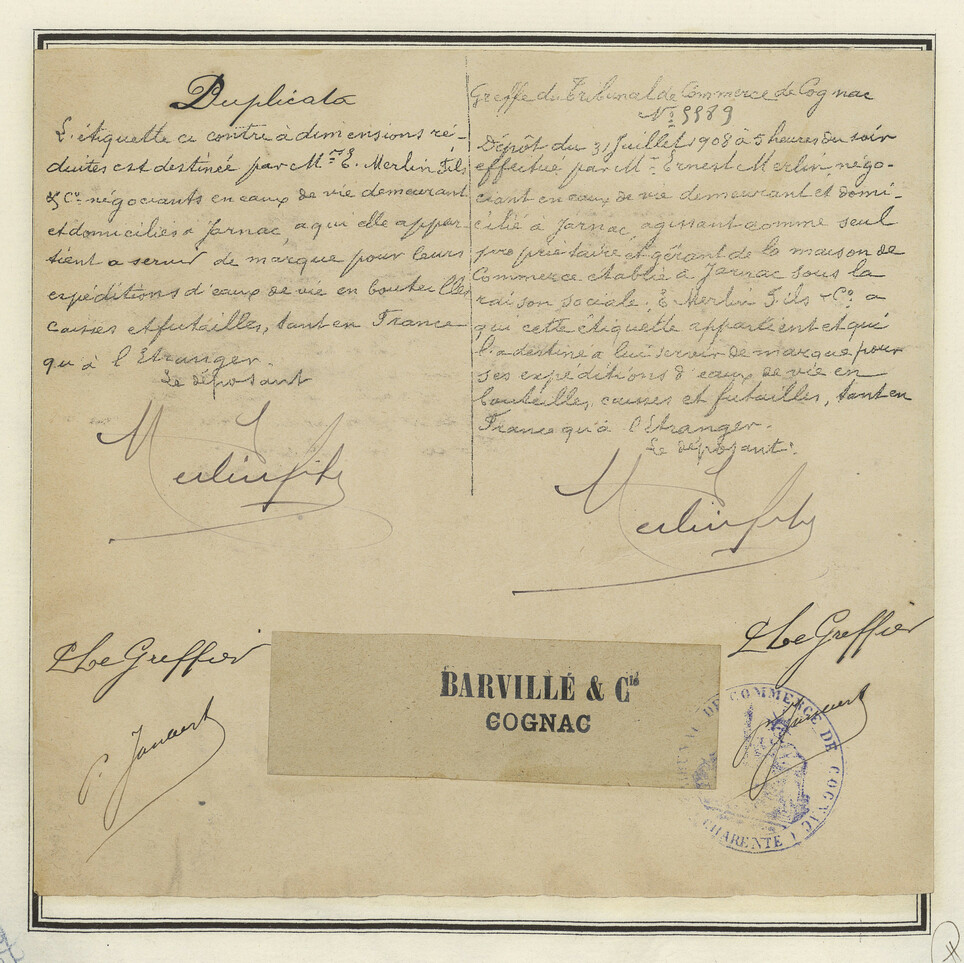 Duplicata
L'étiquette ci contre à dimensions ré-
duites est destinée par Mrs E. Merlin Fils
& Co négociants en eaux de vie demeurant
et domiciliés à Jarnac, a qui elle appar-
tient a servir de marque pour leurs
expéditions d'eaux de vie en bouteilles
caisses et futailles, tant en France
qu'à l'Etranger.
Le déposant
Merlin fils
P. Le Greffier
Greffe du Tribunal de Commerce de Cognac
No 9989
Dépôt du 31 Juillet 1908 à 5 heures du soir
effectué par Mr Ernest Merlin, négo-
ciant en eaux de vie demeurant et domi-
cilié à Jarnac, agissant comme seul
propriétaire et gérant de la maison de
Commerce établie à Jarnac sous la
raison sociale: E. Merlin Fils & Co a
qui cette étiquette appartient et qui
l'a destiné a lui servir de marque pour
ses expéditions d'eaux de vie en
bouteilles, caisses et futailles, tant en
France qu'à l'Etranger.
Le déposant.
Merlin fils
P. Le Greffier
BARVILLÉ & Cie
COGNAC
TRIBUNAL DE COMMERCE DE COGNAC
CHARENTE